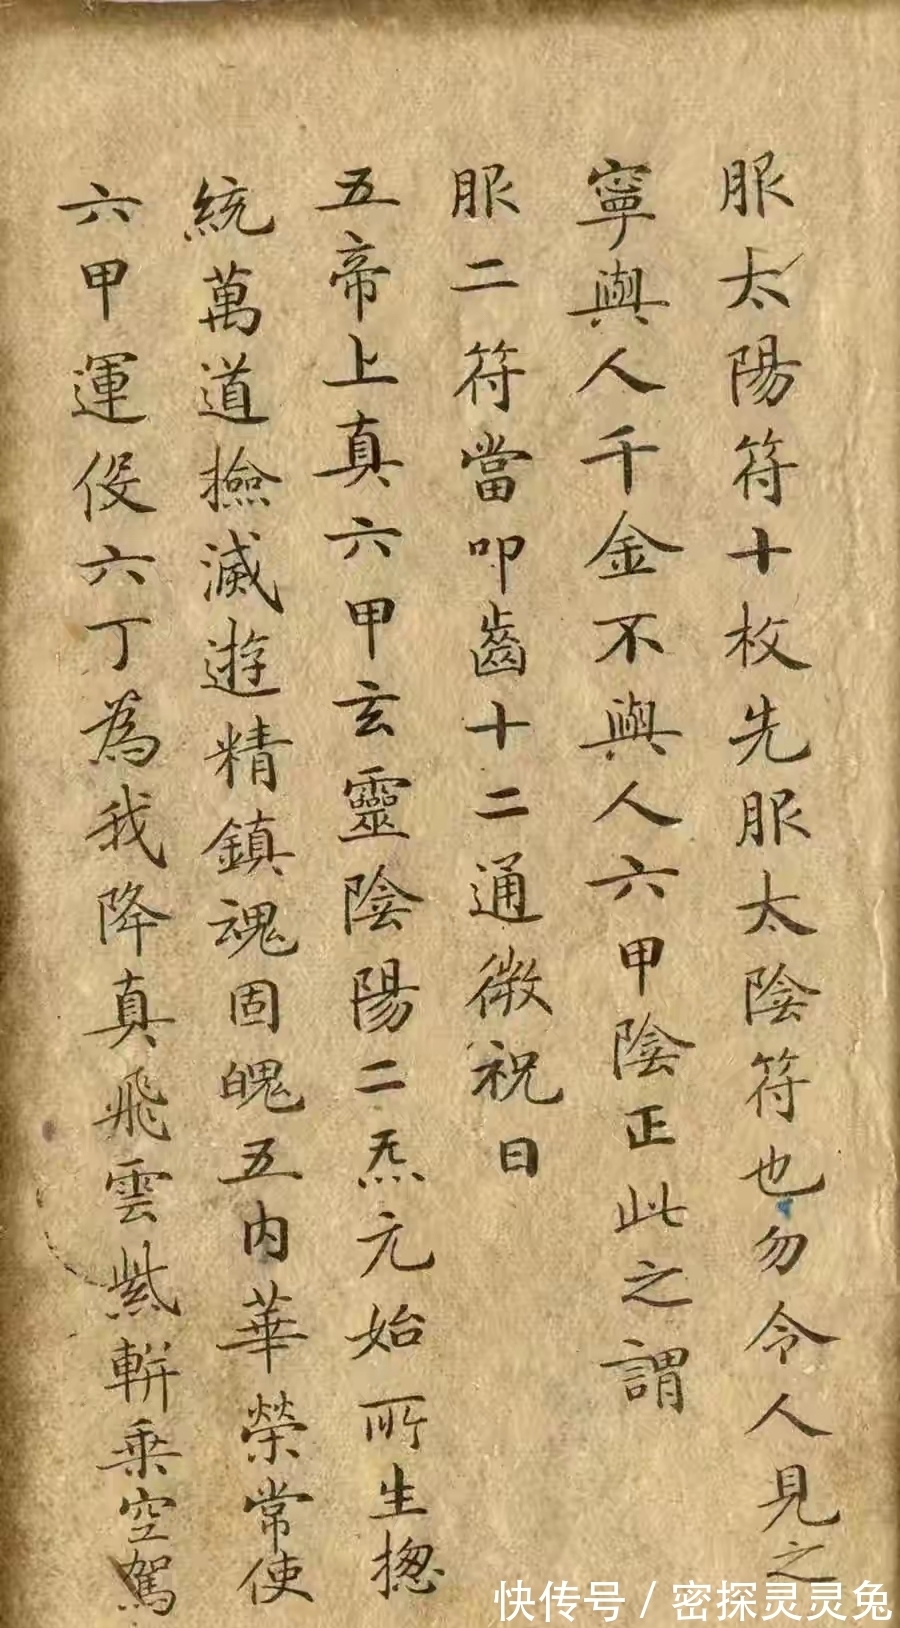 服太陽符十枚先服太陰符也勿令人見之
寧與人千金不與人六甲陰正此之謂
服二符當叩齒十二通微祝曰
五帝上真六甲玄靈陰陽二炁元始所生揔
統萬道撿滅遊精鎮魂固魄五內華榮常使
六甲運役六丁為我降真飛雲紫軿乗空駕
快传号/密探灵灵兔